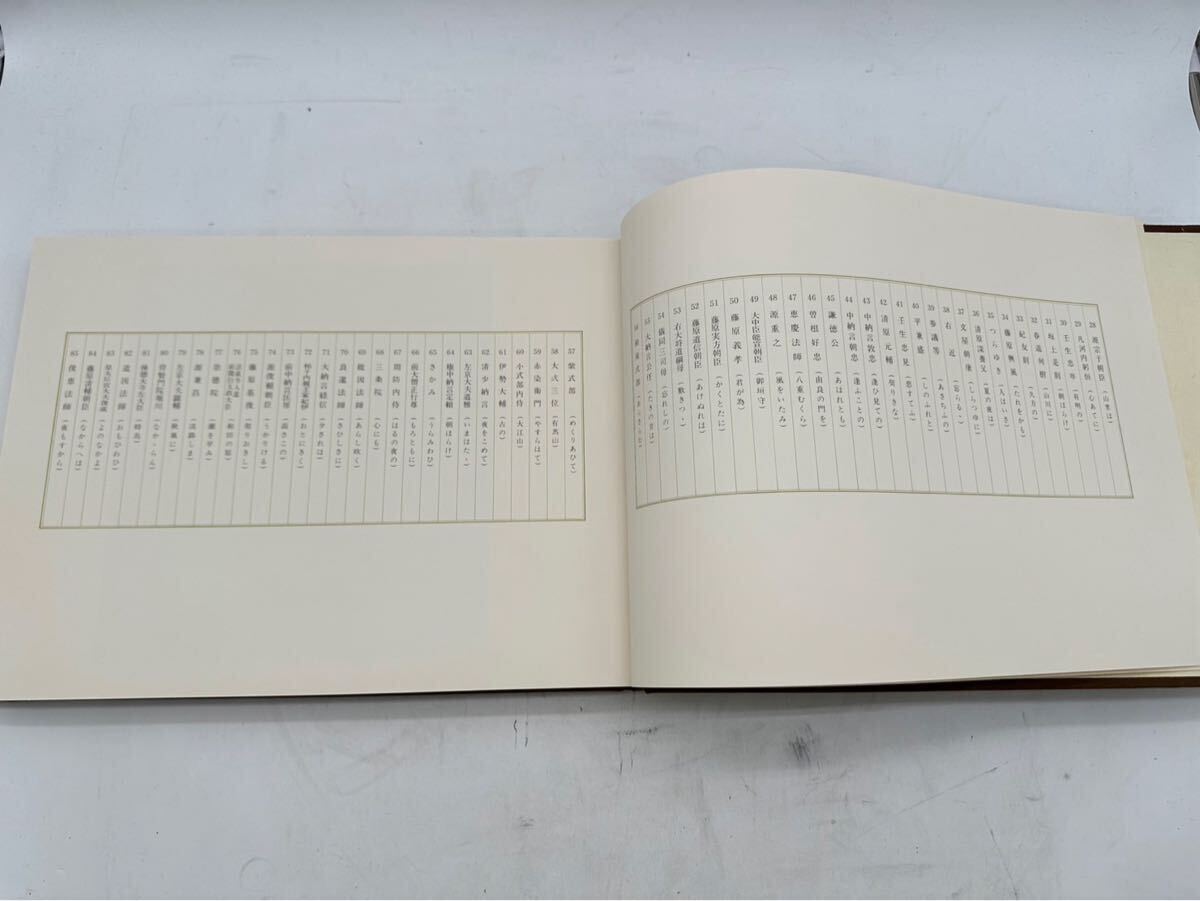 28 源宗于朝臣 (山里は)
29 凡河内躬恒 (心あてに)
30 壬生忠岑 (有明の)
31 坂上是則 (朝ほらけ)
32 春道列樹 (山川に)
33 紀友則 (久方の)
34 藤原興風 (たれをかも)
35 つらゆき (人はいさ)
36 清原深養父 (夏の夜は)
37 文屋朝康 (しらつゆに)
38 右近 (忘らる、)
39 参議等 (あさちふの)
40 平兼盛 (しのふれと)
41 壬生忠見 (恋すてふ)
42 清原元輔 (契りきな)
43 中納言敦忠 (逢ひ見ての)
44 中納言朝忠 (逢ふことの)
45 謙徳公 (あはれとも)
46 曽根好忠 (由良の門を)
47 恵慶法師 (八重むくら)
48 源重之 (風をいたみ)
49 大中臣能宣朝臣 (御垣守)
50 藤原義孝 (君が為)
51 藤原実方朝臣 (かくとたに)
52 藤原道信朝臣 (あけぬれは)
53 右大将道綱母 (歎きつゝ)
54 儀同三司母 (忘れしの)
55 大納言公任 (たきの音は)
56 和泉式部 (あらさらむ)
57 紫式部 (めくりあひて)
58 大弐三位 (有馬山)
59 赤染衛門 (やすらはて)
60 小式部内侍 (大江山)
61 伊勢大輔 (古の)
62 清少納言 (夜をこめて)
63 左京大夫道雅 (いまはたゝ)
64 権中納言定頼 (朝ほらけ)
65 さかみ (うらみわひ)
66 前大僧正行尊 (もろともに)
67 周防内侍 (はるの夜の)
68 三条院 (心にも)
69 能因法師 (あらし吹く)
70 良暹法師 (さひしさに)
71 大納言経信 (夕されは)
72 (おとにきく)
73 前中納言匡房 (高さこの)
74 源俊頼朝臣 (うかりける)
75 藤原基俊 (契りおきし)
76
77 崇徳院 (瀬を早み)
78 源兼昌 (淡路しま)
79 左京大夫顕輔 (秋風に)
80 (なかゝらん)
81
82 道因法師 (おもひわひ)
83 (よのなかよ)
84 藤原清輔朝臣 (なからへは)
85 俊恵法師 (夜もすから)